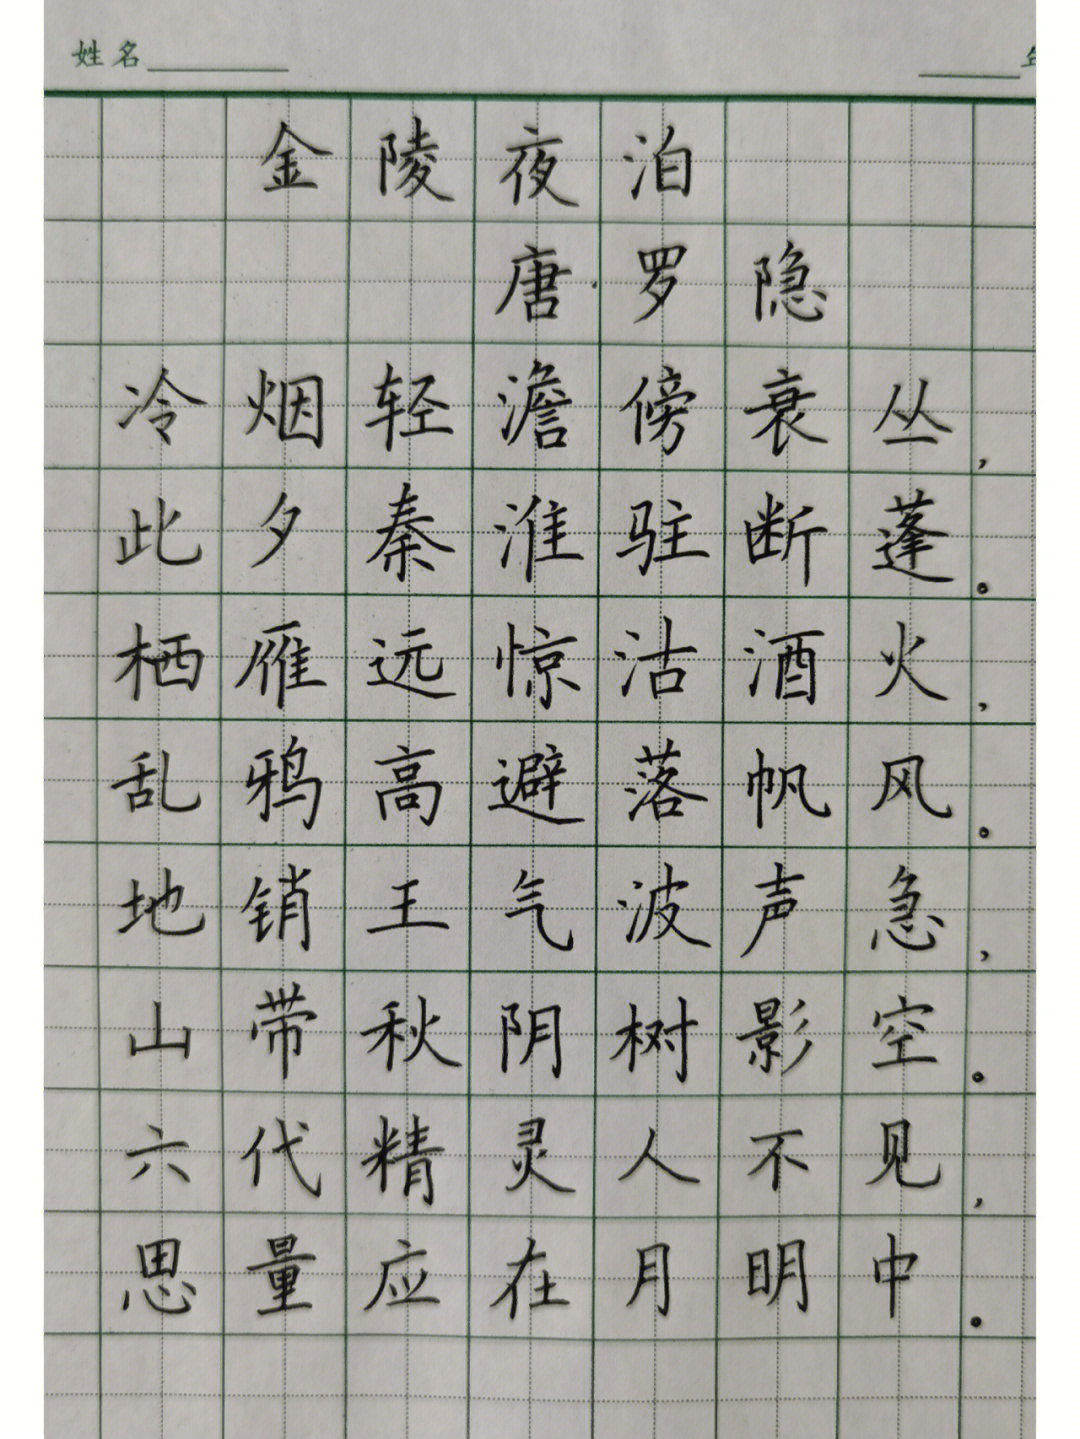 姓名
金陵夜泊
唐·罗隐
冷烟轻澹傍衰丛，
此夕秦淮驻断蓬。
栖雁远惊沽酒火，
乱鸦高避落帆风。
地销王气波声急，
山带秋阴树影空。
六代精灵人不见，
思量应在月明中。